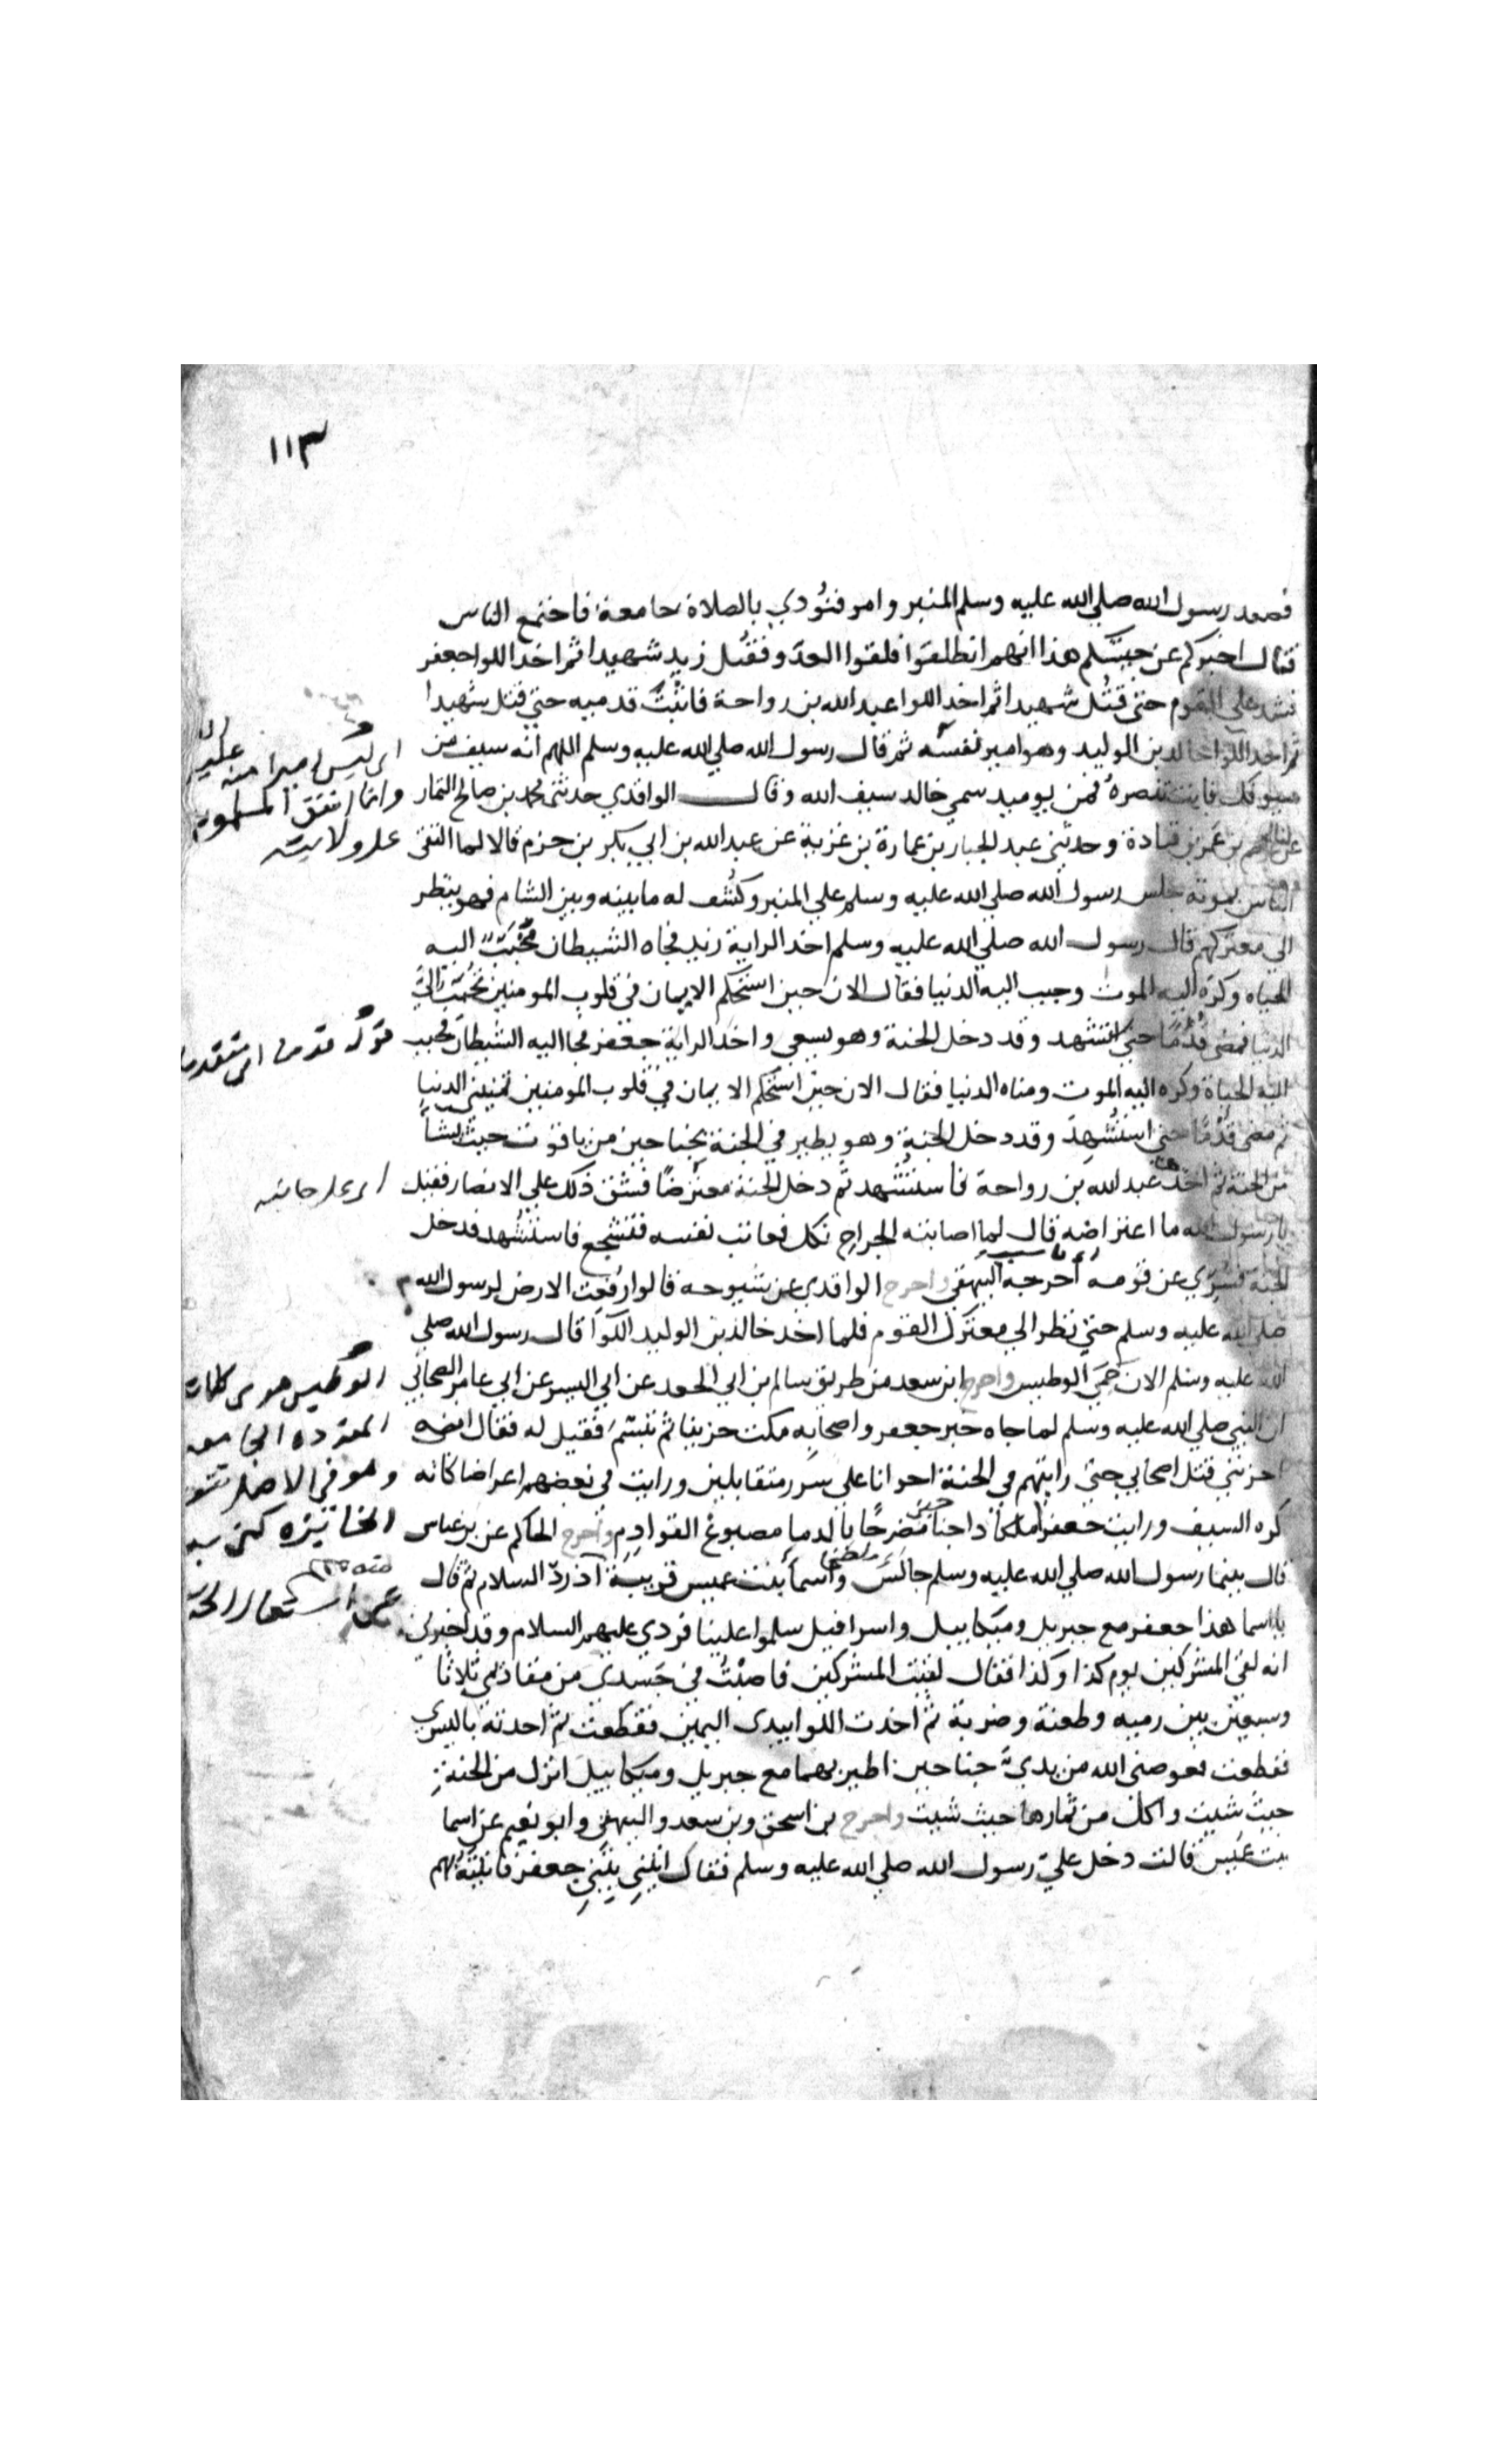 ١١٣
فصعد رسول الله صلي الله عليه وسلم المنبر وامر فنُودي بالصلاة جامعة فاجتمع الناس
فقال اخبركم عن جيشكم هذا انهم انطلقوا فلقوا العدو فقتل زيد شهيدا ثم اخذ اللوا جعفر
فشد علي القوم حتي قتل شهيدا ثم اخذ اللوا عبد الله بن رواحة فاثبت قدميه حتي قتل شهيدا
ثم اخذ اللوا خالد بن الوليد وهو امير نفسه ثم قال رسول الله صلي الله عليه وسلم اللهم انه سيف من
سيوفك فانت تنصره فمن يوميد سمي خالد سيف الله وقال الواقدي حدثني محمد بن صالح التمار
عن عاصم بن عمر بن قتادة وحدثني عبد الجبار بن عمارة بن غزية عن عبد الله بن ابي بكر بن حزم قالا لما التقي
الناس بموتة جلس رسول الله صلي الله عليه وسلم علي المنبر وكُشف له ما بينه وبين الشام فهو ينظر
الي معتركهم قال رسول الله صلي الله عليه وسلم اخذ الراية زيد فجاه الشيطان فحبّبَ اليه
الحياه وكرّه اليه الموت وحبب اليه الدنيا فقال الان حين استحكم الايمان في قلوب المومنين تحبب اليّ
الدنيا فمضي قُدُمًا حتي استشهد وقد دخل الجنة وهو يسعي واخذ الراية جعفر فجا اليه الشيطان فحبب
اليه الحياة وكره اليه الموت ومناه الدنيا فقال الان حين استحكم الايمان في قلوب المومنين تمنيني الدنيا
ثم مضي قُدُمًا حتي استُشهِدَ وقد دخل الجنة وهو يطير في الجنة بجناحين من ياقوت حيث يشأ
من الجنة ثم اخذ عبد الله بن رواحة فاستُشهد ثم دخل الجنة معترضًا فشق ذلك علي الانصار فقيل
يا رسول الله ما اعتراضه قال لما اصابته الجراح نكل فعاتب نفسه فتشجع فاستشهد فدخل
الجنة فسُرّي عن قومه اخرجه البيهقي واخرج الواقدي عن شيوخه قالوا رُفعت الارض لرسول الله
صلي الله عليه وسلم حتي نظر الي معترك القوم فلما اخذ خالد بن الوليد اللوآ قال رسول الله صلي
الله عليه وسلم الان حَمِيَ الوطيس واخرج ابن سعد من طريق سالم بن ابي الجعد عن ابي اليسر عن ابي عامر الصحابي
ان النبي صلي الله عليه وسلم لما جاه خبر جعفر واصحابه مكث حزينا ثم تبسّم فقيل له فقال انه
احزنني قتل اصحابي حتي رايتهم في الجنة اخوانا علي سرر متقابلين ورايت في بعضهم اعراضا كانه
كره السيف ورايت جعفرا ملكا ذا جناحين مضرجًا بالدما مصبوغ القوادم واخرج الحاكم عن بن عباس
قال بينما رسول الله صلي الله عليه وسلم جالس واسمأ بنت عميس قريبة اذ ردّ السلام ثم قال
يا اسما هذا جعفر مع جبريل وميكاييل واسرافيل سلموا علينا فردي عليهم السلام وقد اخبرني
انه لقي المشركين يوم كذا وكذا فقال لقيت المشركين فاصبتُ في جَسدي من مقاذمي ثلاثا
وسبعين بين رميه وطعنة وضربة ثم اخذت اللوا بيدي اليمين فقطعت ثم اخذته باليسري
فقطعت فعوضني الله من يديّ جناحين اطير بهما مع جبريل وميكاييل انزل من الجنة
حيث شيت واكل من ثمارها حيث شيت واخرج بن اسحق وبن سعد والبيهقي وابو نعيم عن اسما
بنت عميس قالت دخل عليّ رسول الله صلي الله عليه وسلم فقال ايتيني ببني جعفر فاتيتهُ بهم
اي ليس اميرا منه عليه
وانما اتفق المسلمون
علي ولايته
قوله قدما اي متقدما
اي علي جانبه
الوطيس هو من كلمات
المفرده الجامعه
وهو في الاصل تنور
الخابزه كني به
عن اشتعال الحرب